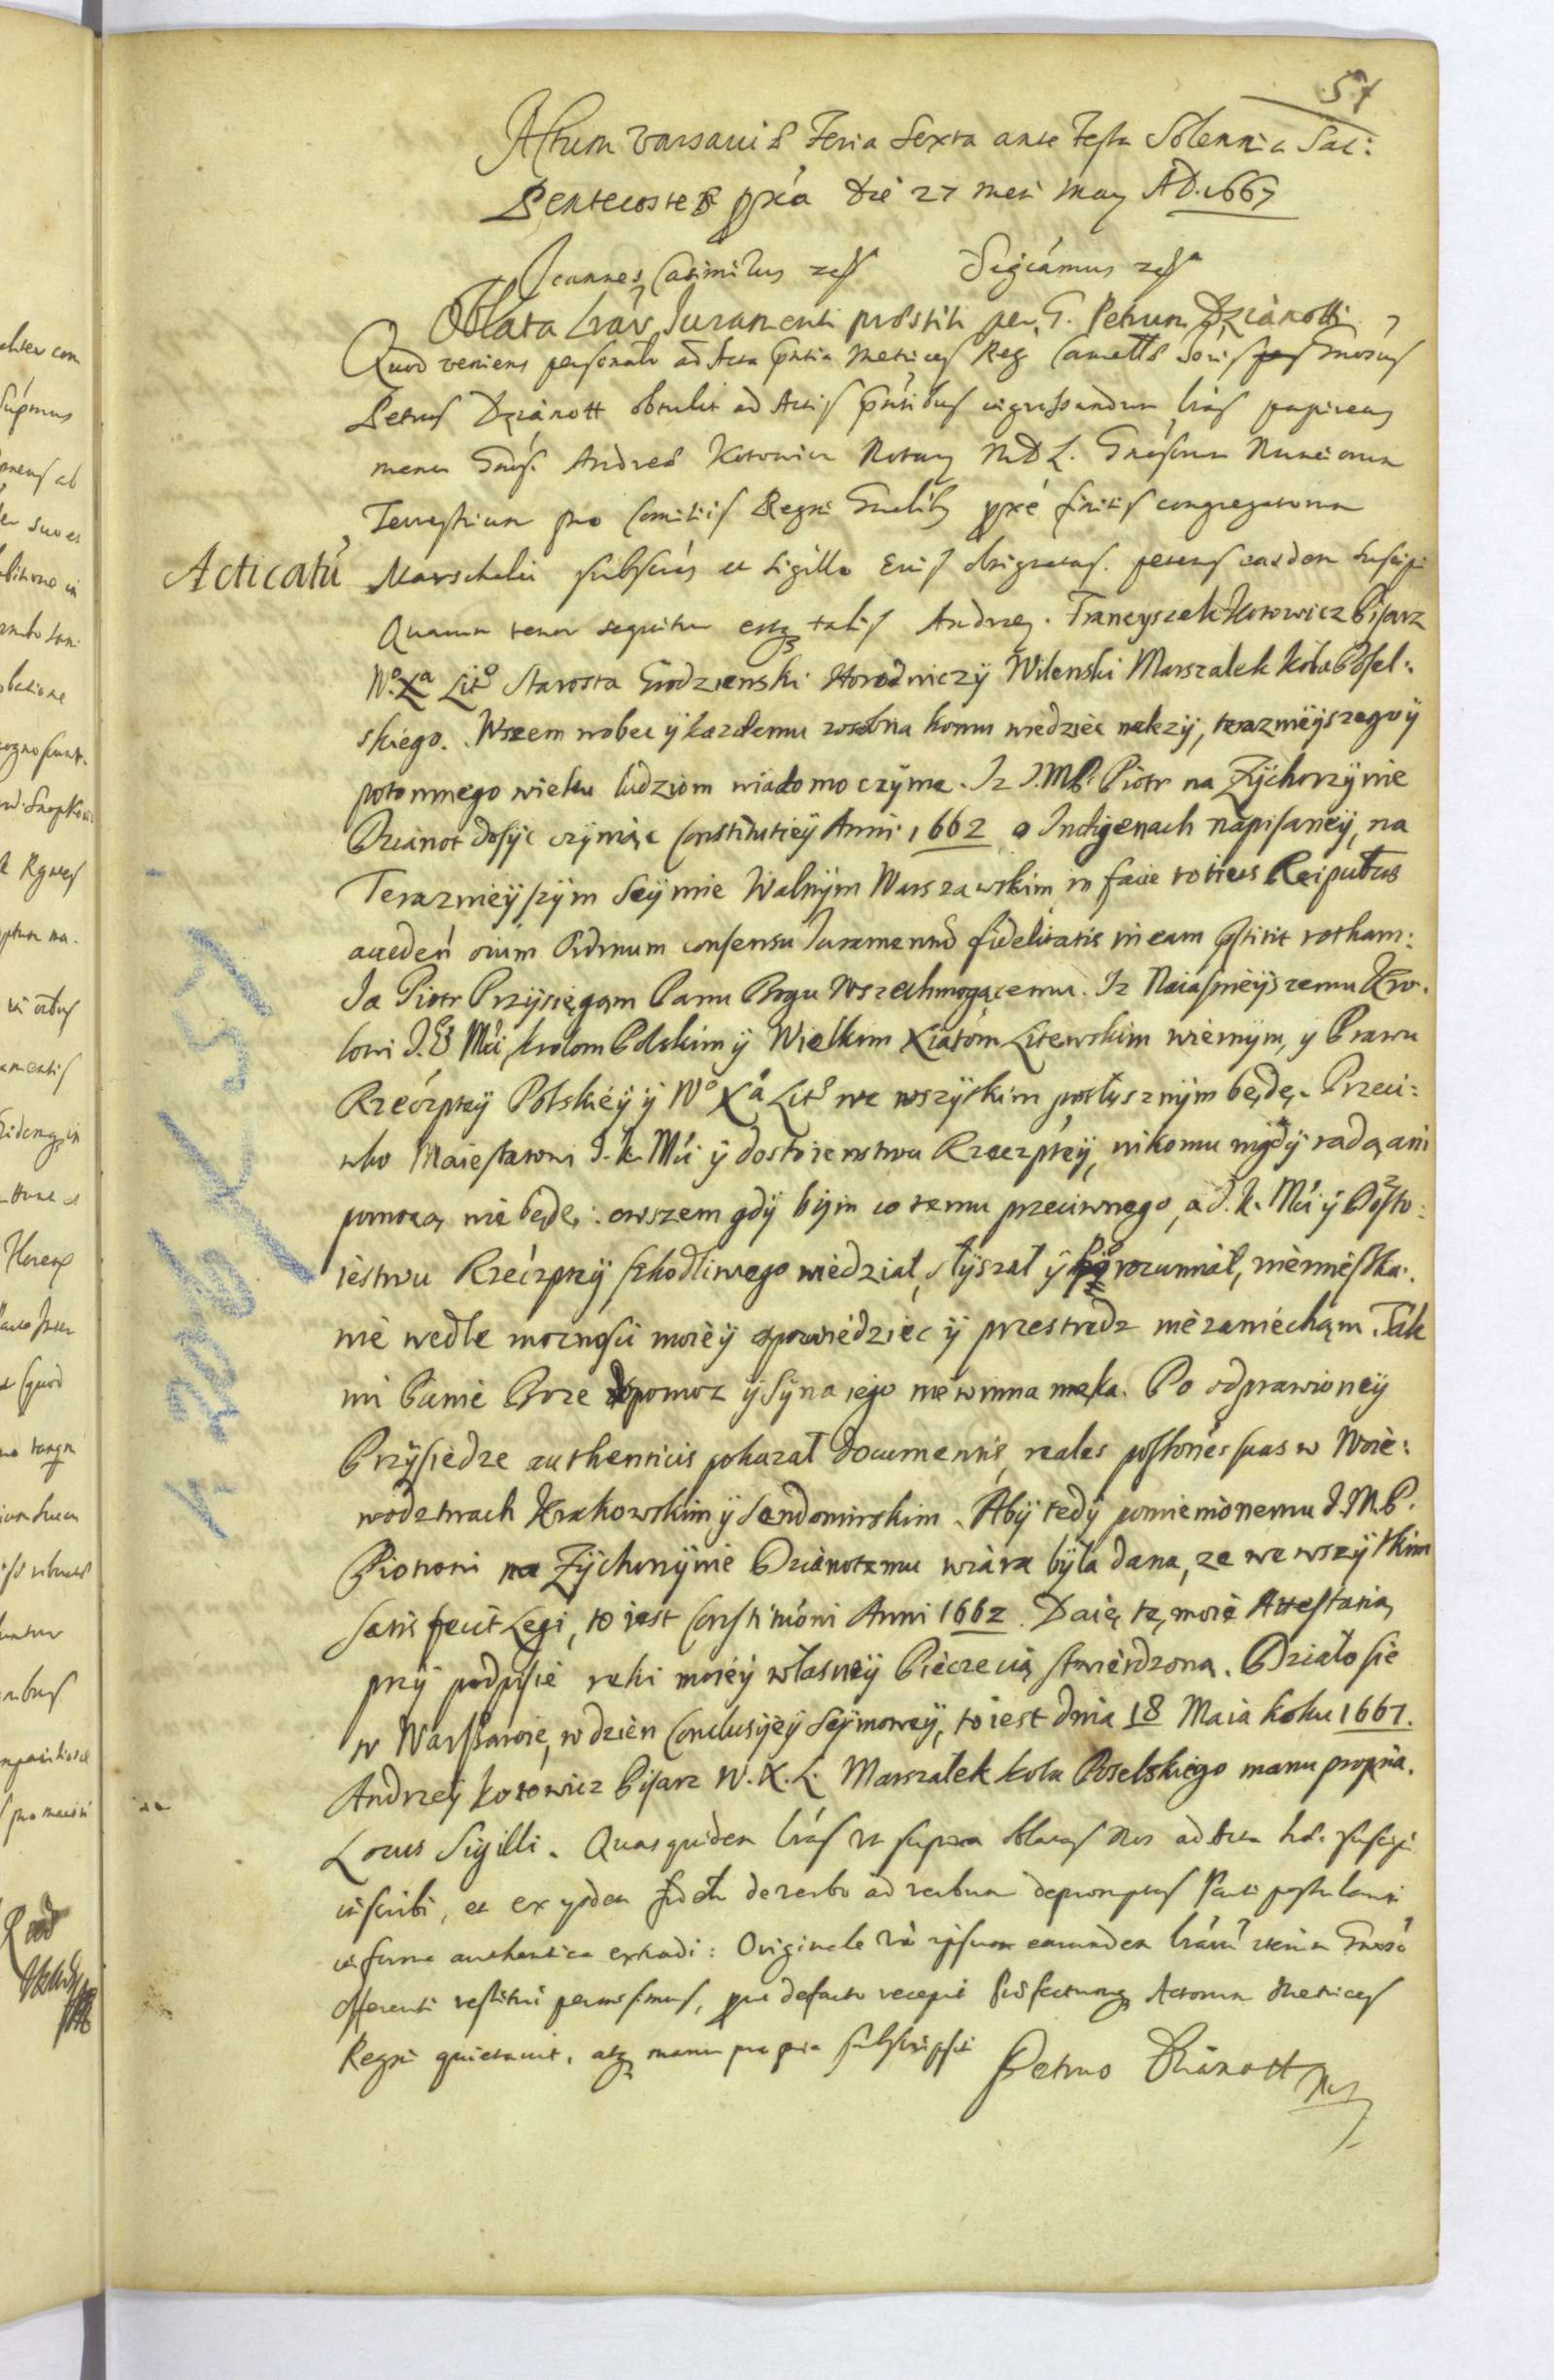 57
Actum Varsaviæ Feria Sexta ante Festa Solennia Sac:
Pentecostes pxia Die 27 Men May AD. 1667
Joannes Casimirus Sigcamus
Oblata Lrar Juramenti præstiti per G. Petrum Dzianotti
Quod veniens personalr ad Acta pntia Metrices Reg Cancell Gnosus
Petrus Dzianott obtulit ad Actis pntibus ingrossandum lras papireas
manu Gnosi Andreæ Kotowicz Notary MDL. Gnosorum Nunciorum
Terrestrium pro Comitiis Regni Gnalibus pxe finitis congregatorum
Acticatu
Marschalci subscrias et Sigillo Eius obsignatas. petens easdem suscipi
Quarum tenor sequitur estq talis Andrzey Franciszek Kotowicz Pisarz
Wo Xa Lito Starosta Grodzienski Horodniczÿ Wilenski Marszałek Koła Posel:
skiego. Wszem wobec ÿ kazdemu zosobna komu wiedziec nalezÿ, terazniëÿszego ÿ
potomnego wieku ludziom wiadomo czÿnie. Iz J.MP. Piotr na Zÿchorzÿnie
Dzianot dosÿc czÿniąc Constitutieÿ Anni 1662 o Indigenach napisaneÿ, na
Terazniëÿszÿm Seÿmie Walnÿm Warszawskim in facie totius Reipubcæ
acceden oium Ordinum consensu Juramentum fidelitatis in eam pstitit rotham:
Ja Piotr Przÿsięgam Panu Bogu Wszechmogącemu. Iz Naiasnieÿszemu Kro:
lowi J.E Mci, krolom Polskim ÿ Wielkim Xiązom Litewskim wiernÿm, ÿ Prawu
Rzeczpteÿ Polskieÿ ÿ Wo Xa Lito we wszÿskim posłusznÿm będę. Przeci:
wko Maiestatowi J. K. Mci ÿ dostoienstwu Rzeczpteÿ, nikomu nigdÿ radą ani
pomocą nie będę: owszem gdÿ bÿm co temu przeciwnego, a J. K. Mci ÿ Dosto:
iestwu Rzeczpteÿ szkodliwego wiedział, słÿszał ÿ porozumiał, niemieszka:
nie wedle moznosci moieÿ opowiedziec ÿ przestrzedz nie zaniecham. Tak
mi Panie Boze dopomoz ÿ Sÿna iego niewinna męka. Po odprawioneÿ
Przÿsiedze authenticis pokazał documentis, reales possiones suas w Woie:
wodztwach Krakowskim ÿ Sendomirskim. Abÿ tedÿ pomienionemu J.M.P.
Piotrowi na Zÿchorzÿnie Dzianotemu wiara bÿła dana, ze we wszÿstkim
satis fecit Legi, to iest Constitutioni Anni 1662. Daię tę moię Attestatią
przÿ podpisie ręki moieÿ własneÿ Pieczęcią stwierdzoną. Działo się
w Warszawie, w dzien Conclusÿieÿ Seÿmoweÿ, to iest dnia 18 Maia Roku 1667.
Andrzeÿ Kotowicz Pisarz W. X. L. Marszałek Koła Poselskiego manu propria.
Locus Sigilli. Quasquidem lras ut supra oblatas Nos ad Acta suscipi
inscribi, et ex ysdem de verbo ad verbum depromptas Parti postulanti
in forma authentica extradi: Originale vero ipsum earundem lrarum
offerenti restitui permisimus, quod defacto recepit Actorum Metrices
Regni quietavit, atq manu propria subscripsit Petrus Dzianott